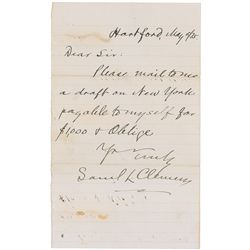 Hartford, May 9/
Dear Sir:
Please mail to me
a draft on New York
payable to myself for
$1000 & Oblige
Yrs Truly
Saml L. Clemens